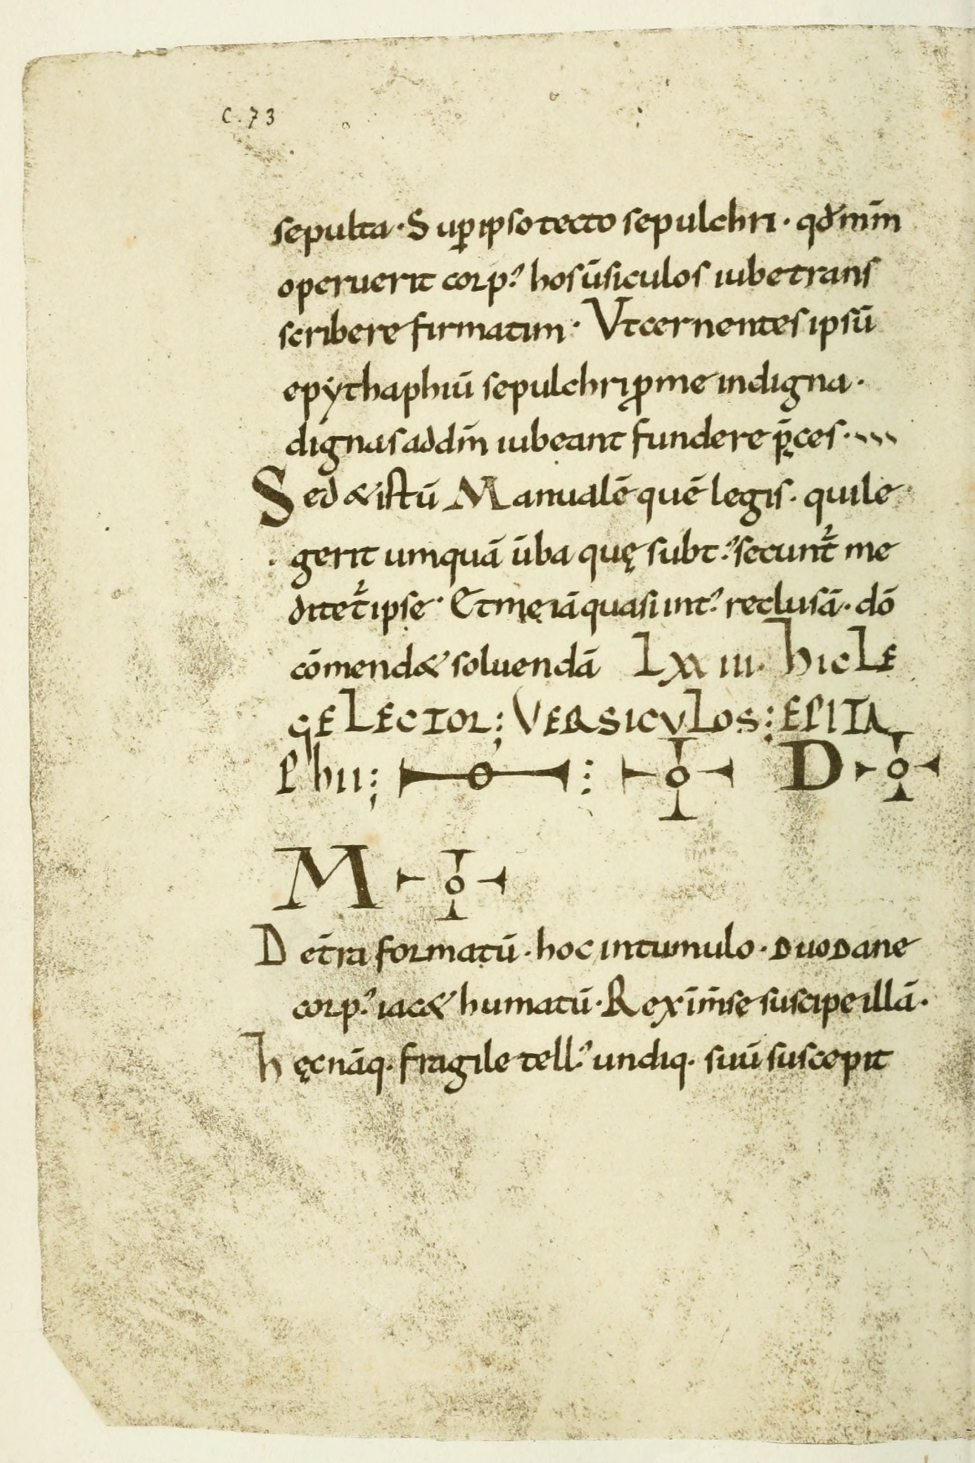 c.73
sepulta· Sup̱ ipso tecto sepulchri· qđ mm̄
operuerit corp᾿ hos ūsiculos iube trans
scribere firmatim· Vt cernentes ipsū
epẏthaphiū sepulchri ꝓ me indigna·
dignas ad dm̄ iubeant fundere p̄ces·
Sed & istū Manualē quē legis· qui le
gerit umquā ūba quę subt᾿ secunt̄ me
ditet̄ ipse· Et me iā quasi int᾿ reclusā· dō
cōmend& soluendā LXXIII· hic LE
GE LECTOR; VERSICVLOS; EPITA
Phii; D
M
D et̄ra formatū· hoc in tumulo· DuoDane
corp᾿ iac& humatū· Rex īm̄se suscipe illā·
hęc nāq· fragile tell᾿ undiq· suū suscepit